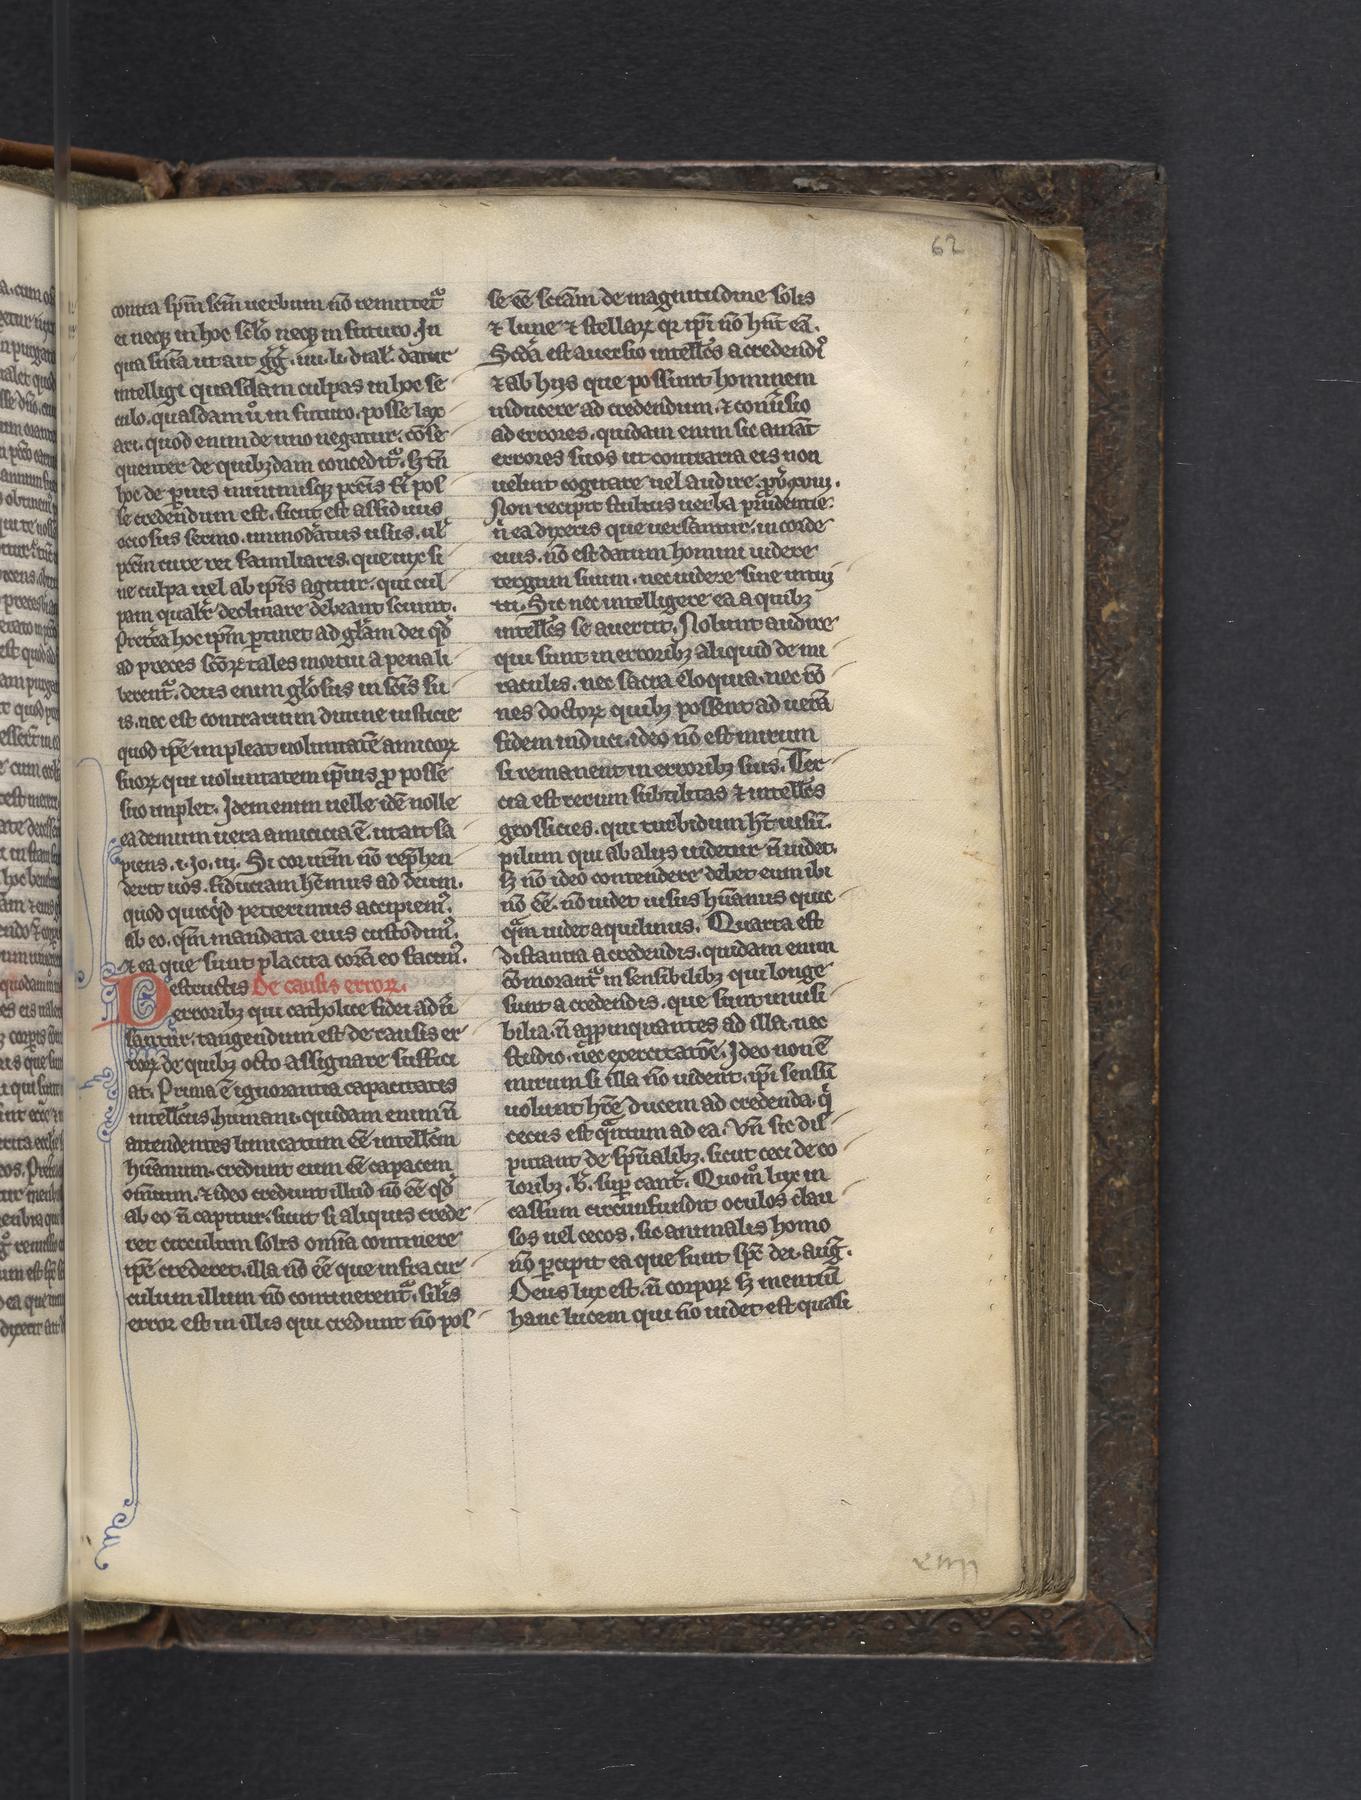 62
contra sp̄m sc̄m uerbum nō remittet᷑
et neq; in hoc sc̄lo neq; in futuro. In
qua sn̄ia ut ait gḡ. iiii. li. dial̄. datur
intelligi quasdam culpas in hoc se
culo. quasdam u̾ in futuro. posse lax
ari. quod enim de uno negatur. cōse
quenter de quibꝫdam concedit᷑. sꝫ tn̄
hoc de paruis minimisq; pecc̄is fi̾ pos
se credendum est. sicut est assiduus
ociosus sermo. inmod̾atus risus. ul̾
pcc̄m cure rei familiaris. que uix si
ne culpa uel ab ip̄is agitur. qui cul
pam qualit̾ declinare debeant sciunt.
Preterea hoc ip̄m ꝑtinet ad gl̄am dei qd̾
ad preces sc̄oꝝ tales mortui a pena li
berent᷑. deus enim gl̄osus in sc̄is su
is. nec est contrarium diuine iusticie
quod ip̄e impleat uoluntatē amicoꝝ
suoꝝ qui uoluntatem ip̄ius ꝓ posse
suo implet. Idem enim uelle idē nolle
ea demum uera amicicia ē. ut ait sa
piens. i. Io. iii. Si cor nr̄m nō rep̄hen
derit nos. fiduciam hēmus ad deum.
quod quicq̾d petierimus accipiem᷒
ab eo. qm̄ mandata eius custodim᷒.
⁊ ea que sunt placita corā eo facim᷒.
Destructis De causis erroꝝ.
erroribꝫ qui catholice fidei aduer
santur. tangendum est de causis er
roꝝ de quibꝫ octo assignare suffici
at. Prima ē ignorantia capacitatis
intellc̄us humani. quidam enim n̄
attendentes limitatum eē intellc̄m
hūanum. credunt eum eē capacem
omīum. ⁊ ideo credunt illud nō eē qd̾
ab eo n̄ capitur. sicut si aliquis crede
ret circulum solis om̄ia continere
ip̄e crederet. illa nō eē que infra cir
culum illum nō continerent᷑. sil̾is
error est in illis qui credunt nō pos
se eē sciam̄ de magnitudine solis
⁊ lune ⁊ stellaꝝ qr ip̄i nō hn̄t eā.
Scd̾a est auersio intellc̄s a credend̾
⁊ ab hijs que possunt hominem
inducere ad credendum. ⁊ conu̾sio
ad errores. quidam enim sic amāt
errores suos ut contraria eis non
uelint cogitare uel audire. prou̾. xviii.
Non recipit stultus uerba prudentie
n̾ ea dixeris que uersantur in corde
eius. nō est datum homini uidere
tergum suum. nec uidere sine intui
tu. Sic nec intelligere ea a quibꝫ
intellc̄s se auertit. Nolunt audire
qui sunt in erroribꝫ aliquid de mi
raculis. nec sacra eloquia. nec rō
nes doctoꝝ quibꝫ possent ad uerā
fidem induci. ideo nō est mirum
si remanent in erroribꝫ suis. Ter
cia est rerum subtilitas ⁊ intellc̄s
grossicies. qui turbidum hēt uisū.
pilum qui ab aliis uidetur n̄ uidet.
sꝫ nō ideo contendere debet eum ibi
nō eē. nō uidet uisus hūanus quic
q̾m uidet aquilinus. Quarta est
distantia a credendis. quidam enim
cōmorant᷑ in sensibilibꝫ qui longe
sunt a credendis. que sunt inuisi
bilia. n̄ appinquantes ad illa. nec
studio. nec exercitatōe. Ideo non ē
mirum si illa nō uident. ip̄i sensū
uolunt hr̄e ducem ad credenda. q̾
cecus est q̾ntum ad ea. Vn̄ sic dis
putant de sp̄ualibꝫ. sicut ceci de co
loribꝫ. b̾. suꝑ cant̾. Quom̊ lux in
cassum circunfundit oculos clau
sos uel cecos. sic animalis homo
nō ꝑcipit ea que sunt sp̄c dei. aug̾.
Deus lux est. n̄ corpoꝝ sꝫ mentiū
hanc lucem qui nō uidet est quasi